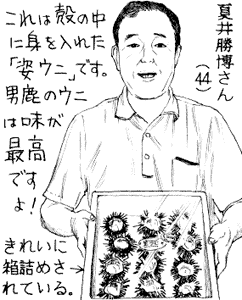 夏井勝博さん
(44)
これは殻の中
に身を入れた
「姿ウニ」です。
男鹿のウニ
は味が
最高
です
よ!
きれいに
箱詰めさ
れている。